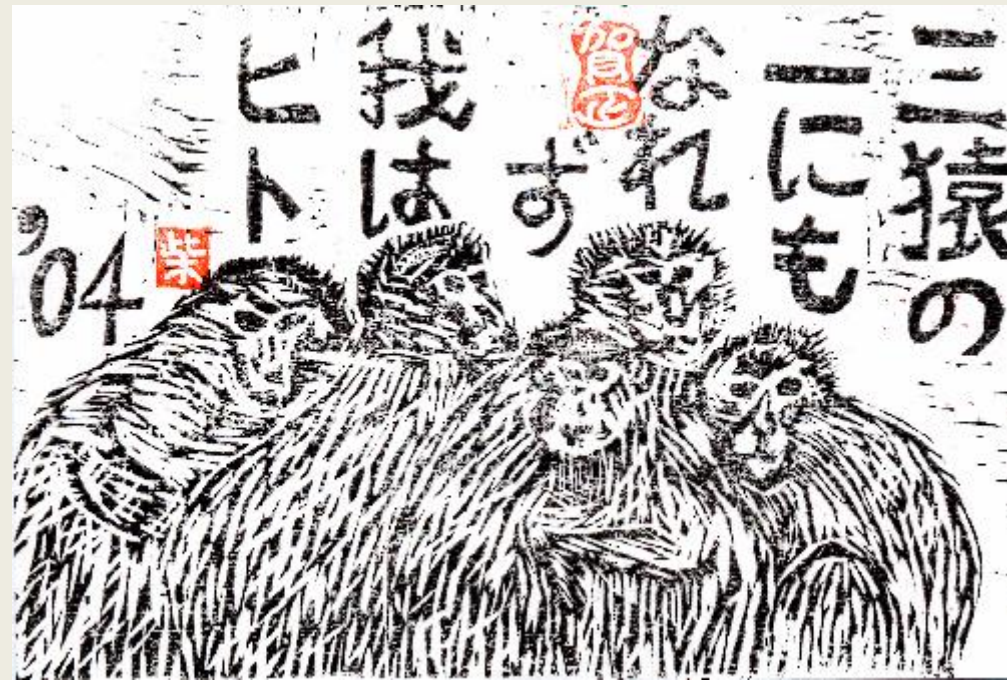 三猿の
一にも
なれ
ず
我は
ヒト
賀正
'04
柴